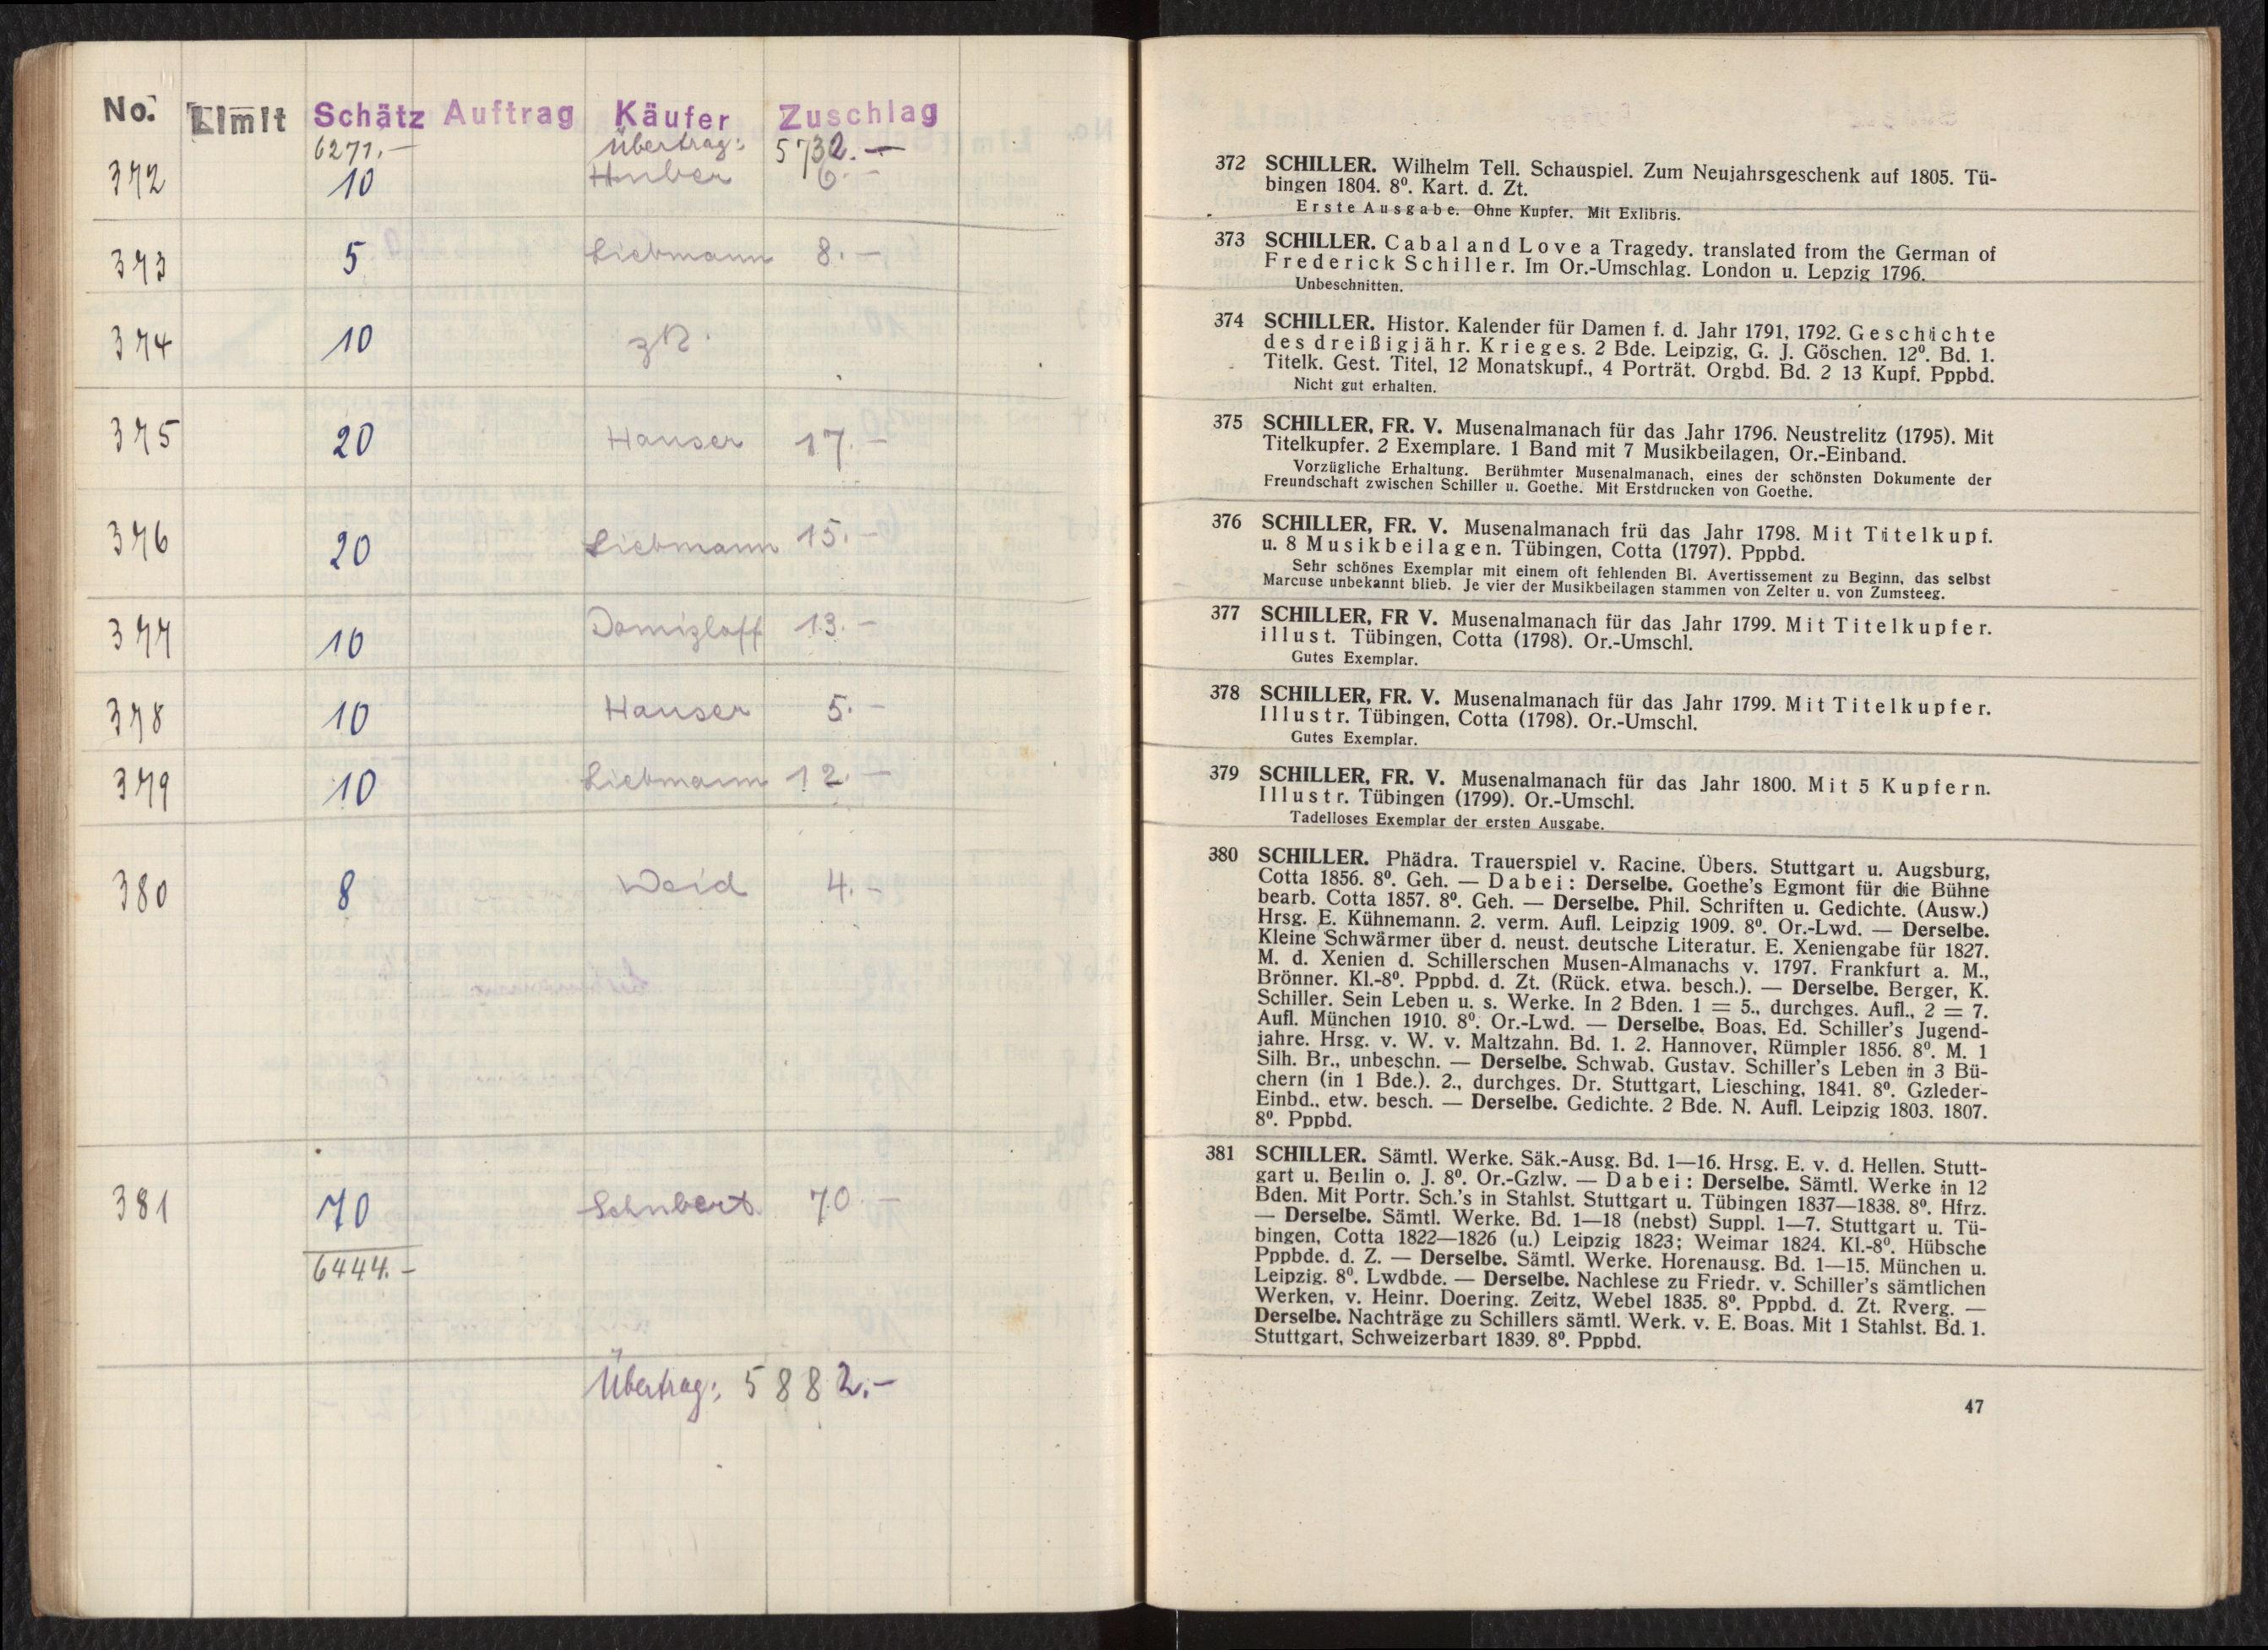 No. Limit Schätz Auftrag Käufer Zuschlag
6271.— Übertrag: 5732.—
372 10 Huber 6.—
373 5 Liebmann 8.—
374 10 zR.
375 20 Hauser 17.—
376 20 Liebmann 15.—
377 10 Domizlaff 13.—
378 10 Hauser 5.—
379 10 Liebmann 12.—
380 8 Weid 4.—
381 70 Schubert 70.—
6444.—
Übertrag: 5882.—
372 SCHILLER. Wilhelm Tell. Schauspiel. Zum Neujahrsgeschenk auf 1805. Tü-
bingen 1804. 8⁰. Kart. d. Zt.
Erste Ausgabe. Ohne Kupfer. Mit Exlibris.
373 SCHILLER. Cabal and Love a Tragedy. translated from the German of
Frederick Schiller. Im Or.-Umschlag. London u. Lepzig 1796.
Unbeschnitten.
374 SCHILLER. Histor. Kalender für Damen f. d. Jahr 1791, 1792. Geschichte
des dreißigjähr. Krieges. 2 Bde. Leipzig, G. J. Göschen. 12⁰. Bd. 1.
Titelk. Gest. Titel, 12 Monatskupf., 4 Porträt. Orgbd. Bd. 2 13 Kupf. Pppbd.
Nicht gut erhalten.
375 SCHILLER, FR. V. Musenalmanach für das Jahr 1796. Neustrelitz (1795). Mit
Titelkupfer. 2 Exemplare. 1 Band mit 7 Musikbeilagen, Or.-Einband.
Vorzügliche Erhaltung. Berühmter Musenalmanach, eines der schönsten Dokumente der
Freundschaft zwischen Schiller u. Goethe. Mit Erstdrucken von Goethe.
376 SCHILLER, FR. V. Musenalmanach frü das Jahr 1798. Mit Titelkupf.
u. 8 Musikbeilagen. Tübingen, Cotta (1797). Pppbd.
Sehr schönes Exemplar mit einem oft fehlenden Bl. Avertissement zu Beginn, das selbst
Marcuse unbekannt blieb. Je vier der Musikbeilagen stammen von Zelter u. von Zumsteeg.
377 SCHILLER, FR V. Musenalmanach für das Jahr 1799. Mit Titelkupfer.
illust. Tübingen, Cotta (1798). Or.-Umschl.
Gutes Exemplar.
378 SCHILLER, FR. V. Musenalmanach für das Jahr 1799. Mit Titelkupfer.
Illustr. Tübingen, Cotta (1798). Or.-Umschl.
Gutes Exemplar.
379 SCHILLER, FR. V. Musenalmanach für das Jahr 1800. Mit 5 Kupfern.
Illustr. Tübingen (1799). Or.-Umschl.
Tadelloses Exemplar der ersten Ausgabe.
380 SCHILLER. Phädra. Trauerspiel v. Racine. Übers. Stuttgart u. Augsburg,
Cotta 1856. 8⁰. Geh. — Dabei: Derselbe. Goethe's Egmont für die Bühne
bearb. Cotta 1857. 8⁰. Geh. — Derselbe. Phil. Schriften u. Gedichte. (Ausw.)
Hrsg. E. Kühnemann. 2. verm. Aufl. Leipzig 1909. 8⁰. Or.-Lwd. — Derselbe.
Kleine Schwärmer über d. neust. deutsche Literatur. E. Xeniengabe für 1827.
M. d. Xenien d. Schillerschen Musen-Almanachs v. 1797. Frankfurt a. M.,
Brönner. Kl.-8⁰ Pppbd. d. Zt. (Rück. etwa. besch.). — Derselbe. Berger, K.
Schiller. Sein Leben u. s. Werke. In 2 Bden. 1 = 5., durchges. Aufl., 2 = 7.
Aufl. München 1910. 8⁰. Or.-Lwd. — Derselbe. Boas, Ed. Schiller's Jugend-
jahre. Hrsg. v. W. v. Maltzahn. Bd. 1. 2. Hannover, Rümpler 1856. 8⁰. M. 1
Silh. Br., unbeschn. — Derselbe. Schwab, Gustav. Schiller's Leben in 3 Bü-
chern (in 1 Bde.). 2., durchges. Dr. Stuttgart, Liesching, 1841. 8⁰. Gzleder-
Einbd., etw. besch. — Derselbe. Gedichte. 2 Bde. N. Aufl. Leipzig 1803. 1807.
8⁰. Pppbd.
381 SCHILLER. Sämtl. Werke. Säk.-Ausg. Bd. 1—16. Hrsg. E. v. d. Hellen. Stutt-
gart u. Berlin o. J. 8⁰. Or.-Gzlw. — Dabei: Derselbe. Sämtl. Werke in 12
Bden. Mit Portr. Sch.'s in Stahlst. Stuttgart u. Tübingen 1837—1838. 8⁰. Hfrz.
— Derselbe. Sämtl. Werke. Bd. 1—18 (nebst) Suppl. 1—7. Stuttgart u. Tü-
bingen, Cotta 1822—1826 (u.) Leipzig 1823; Weimar 1824. Kl.-8⁰. Hübsche
Pppbde. d. Z. — Derselbe. Sämtl. Werke. Horenausg. Bd. 1—15. München u.
Leipzig. 8⁰. Lwdbde. — Derselbe. Nachlese zu Friedr. v. Schiller's sämtlichen
Werken, v. Heinr. Doering. Zeitz, Webel 1835. 8⁰. Pppbd. d. Zt. Rverg. —
Derselbe. Nachträge zu Schillers sämtl. Werk. v. E. Boas. Mit 1 Stahlst. Bd. 1.
Stuttgart, Schweizerbart 1839. 8⁰. Pppbd.
47